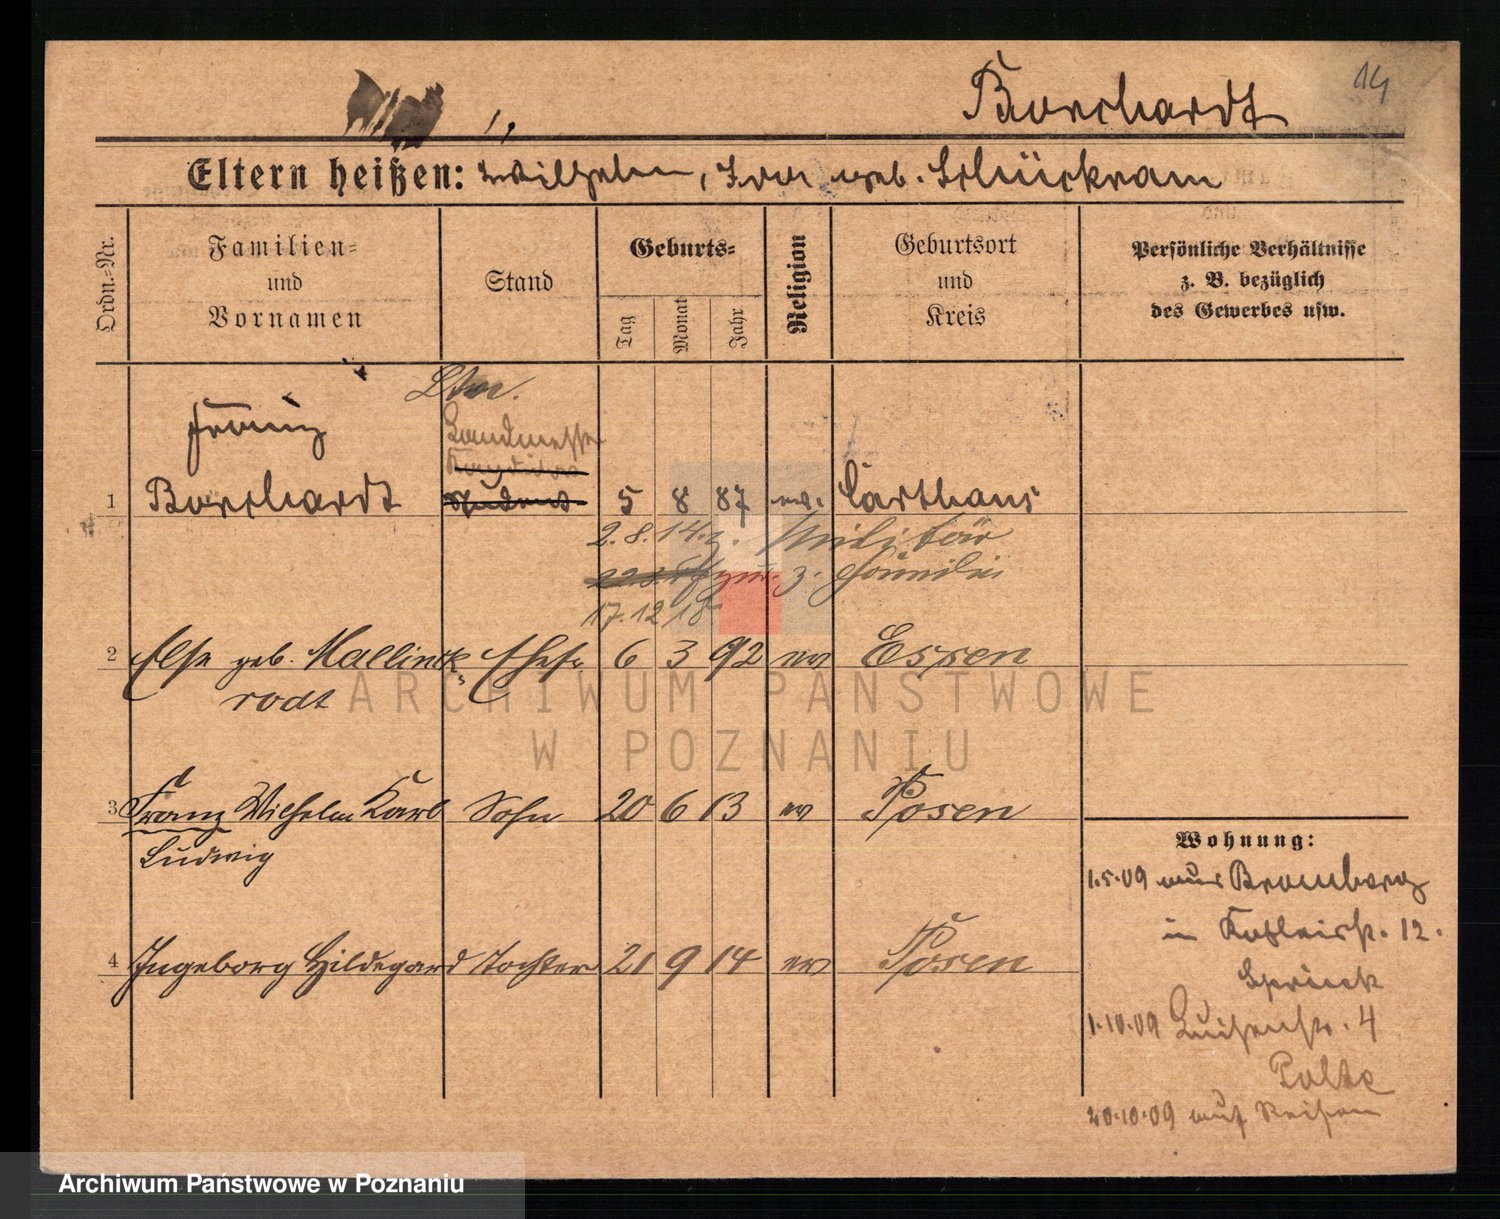 Borchardt
14
Eltern heißen: Wilhelm, Ida geb. Schückram
Ordn.-Nr.
Familien-
und
Vornamen
Stand
Geburts-
Tag
Monat
Jahr
Religion
Geburtsort
und
Kreis
Persönliche Verhältnisse
z. B. bezüglich
des Gewerbes usw.
Franz
Landmesser
1 Borchardt Student 5 8 87 ev. Carthaus
2.8.14. z. Militär
z. Familie
17.12.18
2 Else geb. Mallinck- Ehefr 6 3 92 ev Essen
rodt
3 Franz Wilhelm Karl Sohn 20 6 13 ev Posen
Ludwig
4 Ingeborg Hildegard Tochter 21 9 14 ev Posen
Wohnung:
1.5.09 aus Bromberg
in 12.
1.10.09 Luisenstr. 4
Polte
20.10.09 auf Reisen
ARCHIWUM PAŃSTWOWE
W POZNANIU
Archiwum Państwowe w Poznaniu